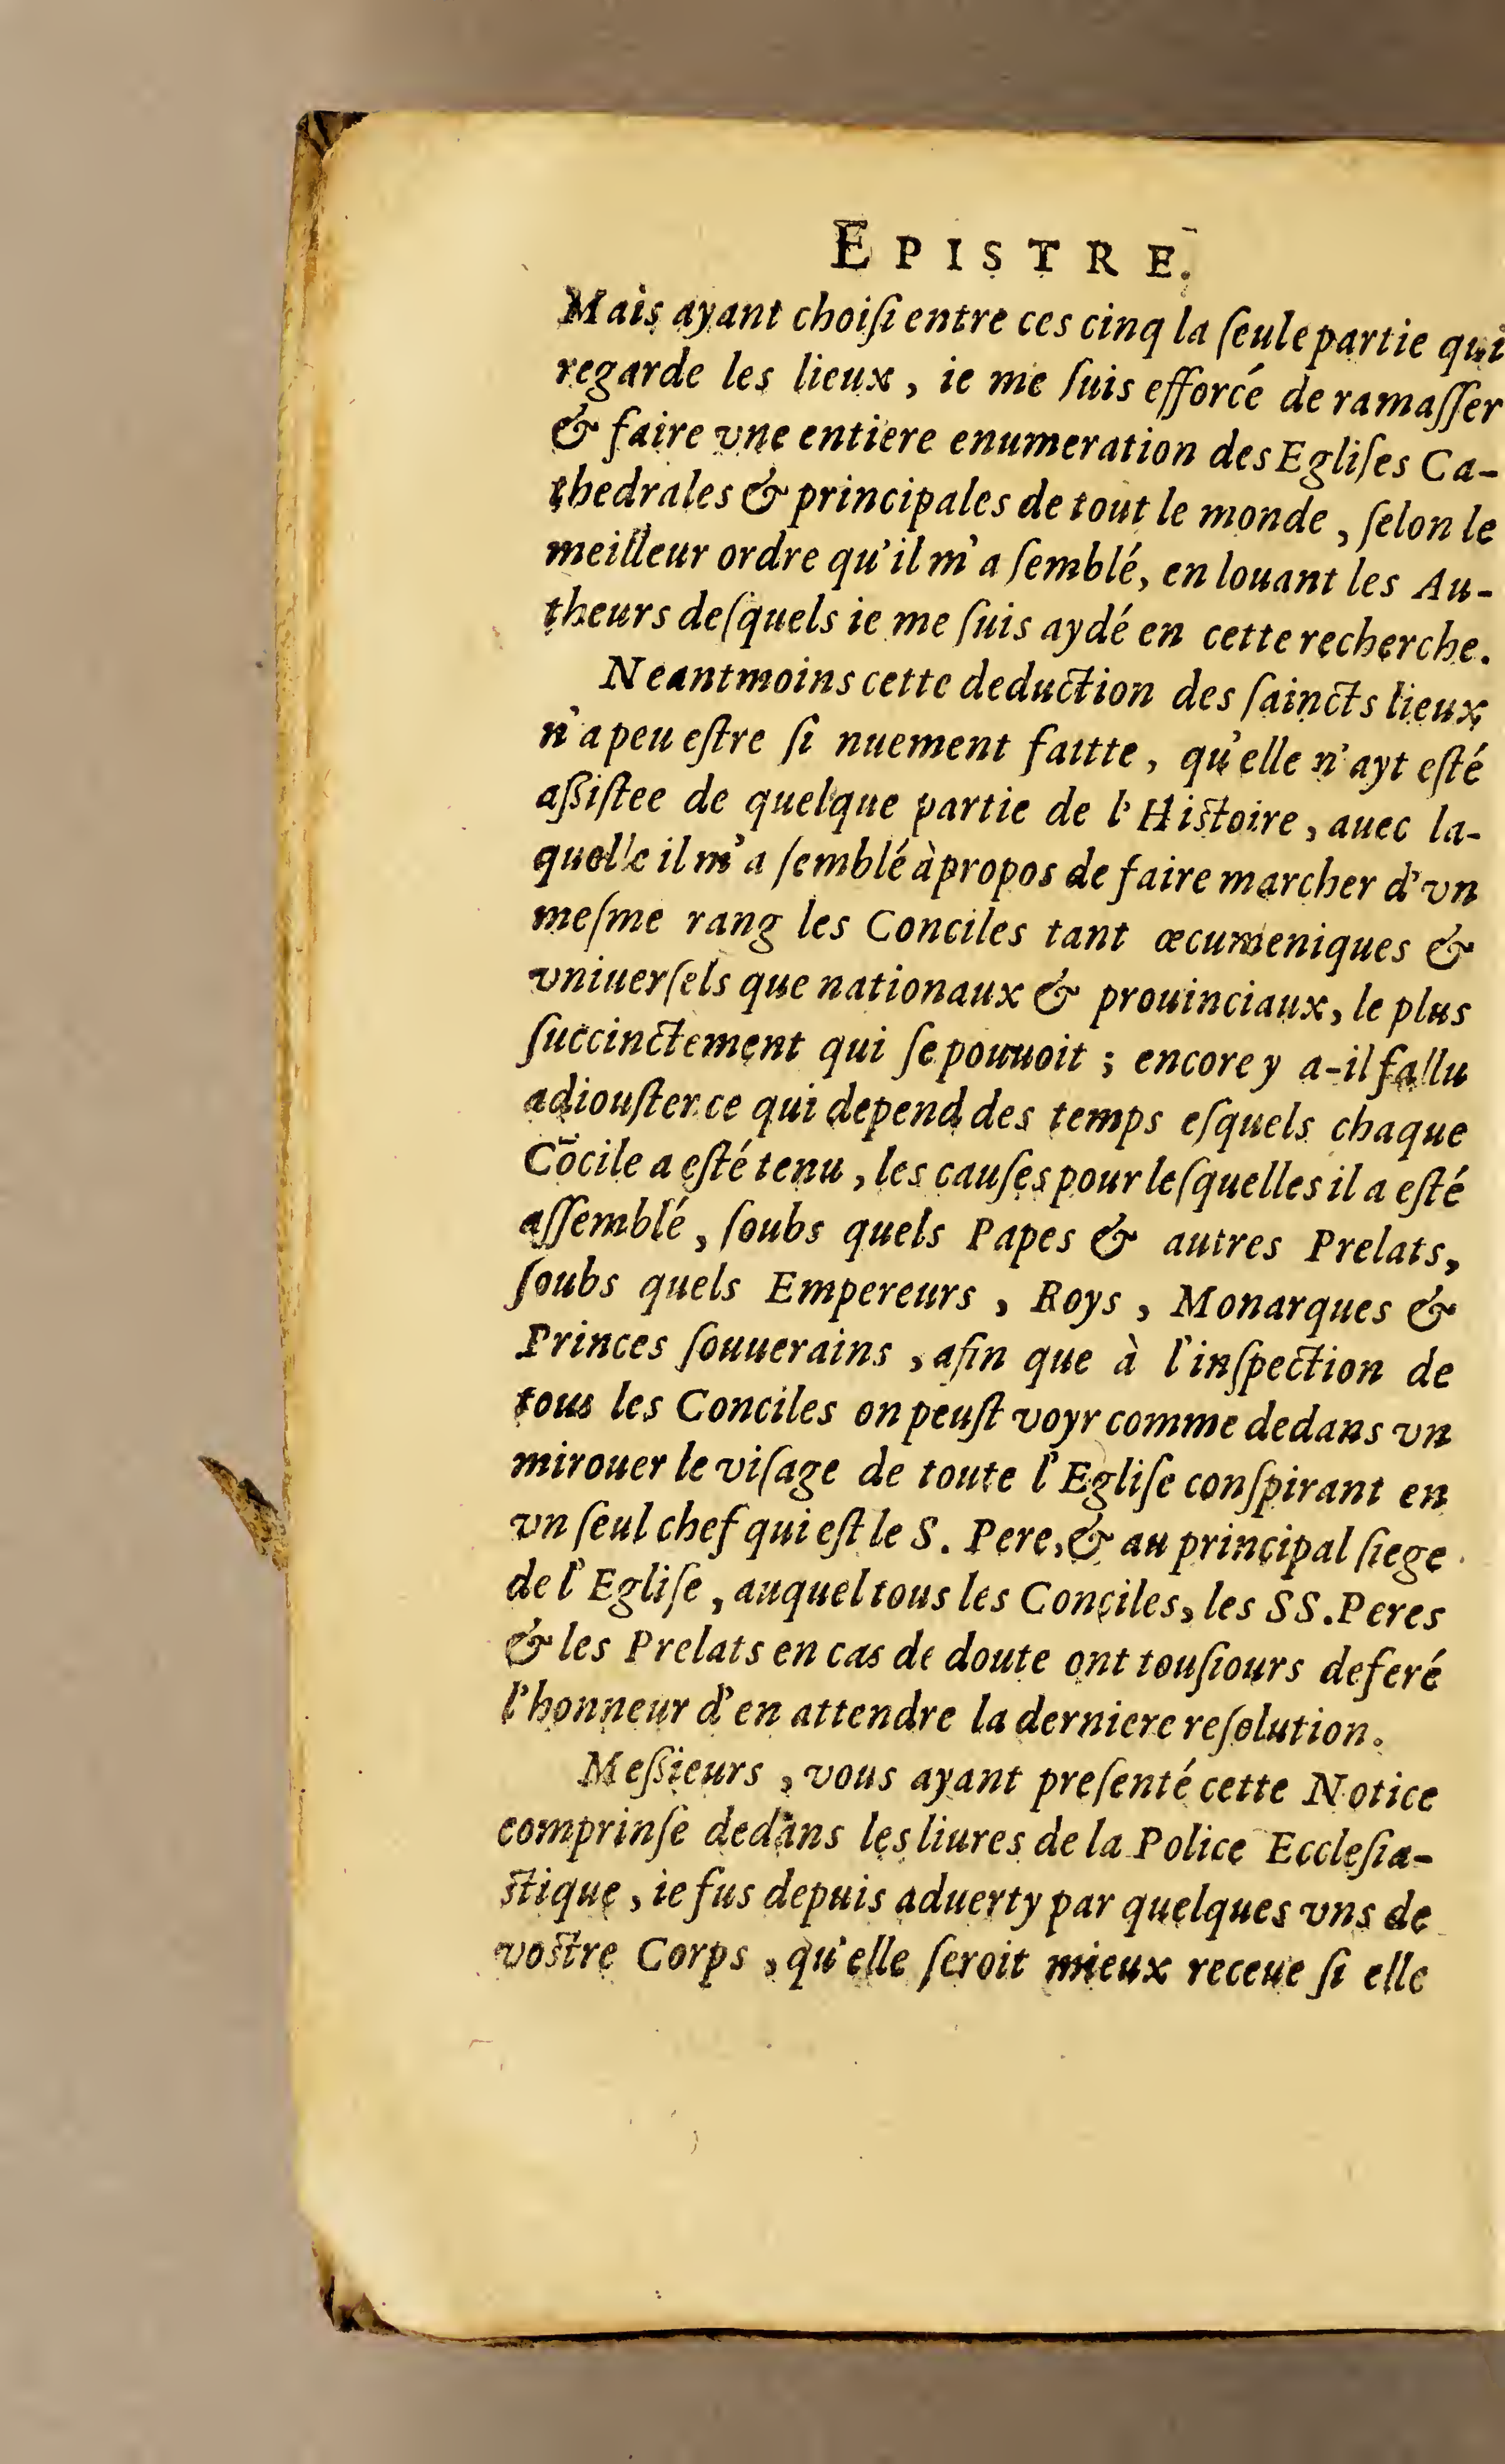 EPISTRE.
Mais ayant choiſi entre ces cinq la ſeule partie qui
regarde les lieux, ie me ſuis efforcé de ramaſſer
& faire vne entiere enumeration des Egliſes Ca-
thedrales & principales de tout le monde, ſelon le
meilleur ordre qu'il m'a ſemblé, en louant les Au-
theurs deſquels ie me ſuis aydé en cette recherche.
Neantmoins cette deduction des ſaincts lieux
n'a peu eſtre ſi nuement faitte, qu'elle n'ayt eſté
aſſiſtee de quelque partie de l'Histoire, auec la-
quelle il m'a ſemblé à propos de faire marcher d'vn
meſme rang les Conciles tant œcumeniques &
vniuerſels que nationaux & prouinciaux, le plus
ſuccinctement qui ſe pouuoit ; encore y a-il fallu
adiouſter ce qui depend des temps eſquels chaque
Cōcile a eſté tenu, les cauſes pour leſquelles il a eſté
aſſemblé, ſoubs quels Papes & autres Prelats,
ſoubs quels Empereurs, Roys, Monarques &
Princes ſouuerains, afin que à l'inſpection de
tous les Conciles on peuſt voyr comme dedans vn
mirouer le viſage de toute l'Egliſe conſpirant en
vn ſeul chef qui eſt le S. Pere, & au principal ſiege
de l'Egliſe, auquel tous les Conciles, les SS. Peres
& les Prelats en cas de doute ont touſiours deferé
l'honneur d'en attendre la derniere reſolution.
Meſſieurs, vous ayant preſenté cette Notice
comprinſe dedans les liures de la Police Eccleſia-
stique, ie fus depuis aduerty par quelques vns de
vostre Corps, qu'elle ſeroit mieux receue ſi elle